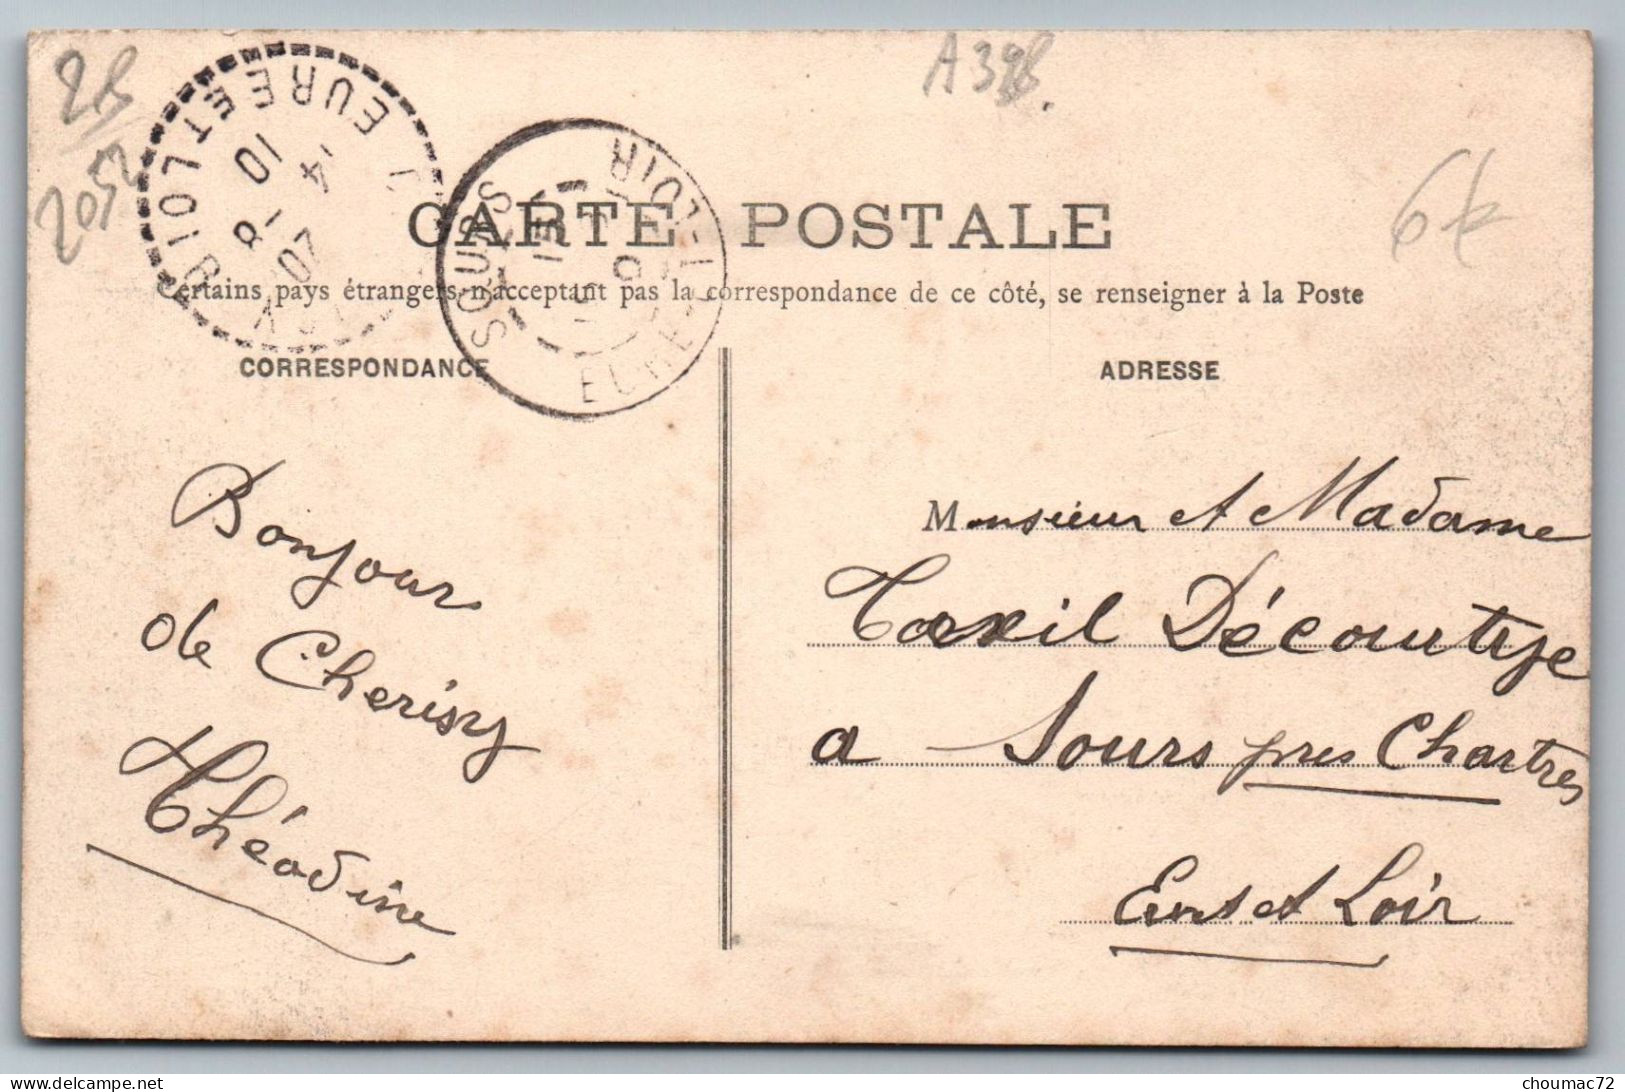 28
2052
A 398.
6€
EURE ET LOIR
14
10 -8
07
SOURS
EURE-ET-LOIR
CARTE POSTALE
Certains pays étrangers n'acceptant pas la correspondance de ce côté, se renseigner à la Poste
CORRESPONDANCE
ADRESSE
Bonjour
de Cherisy
Théodine
Monsieur et Madame
Taxil Décourtye
a Sours pres Chartres
Eure et Loir
choumac72